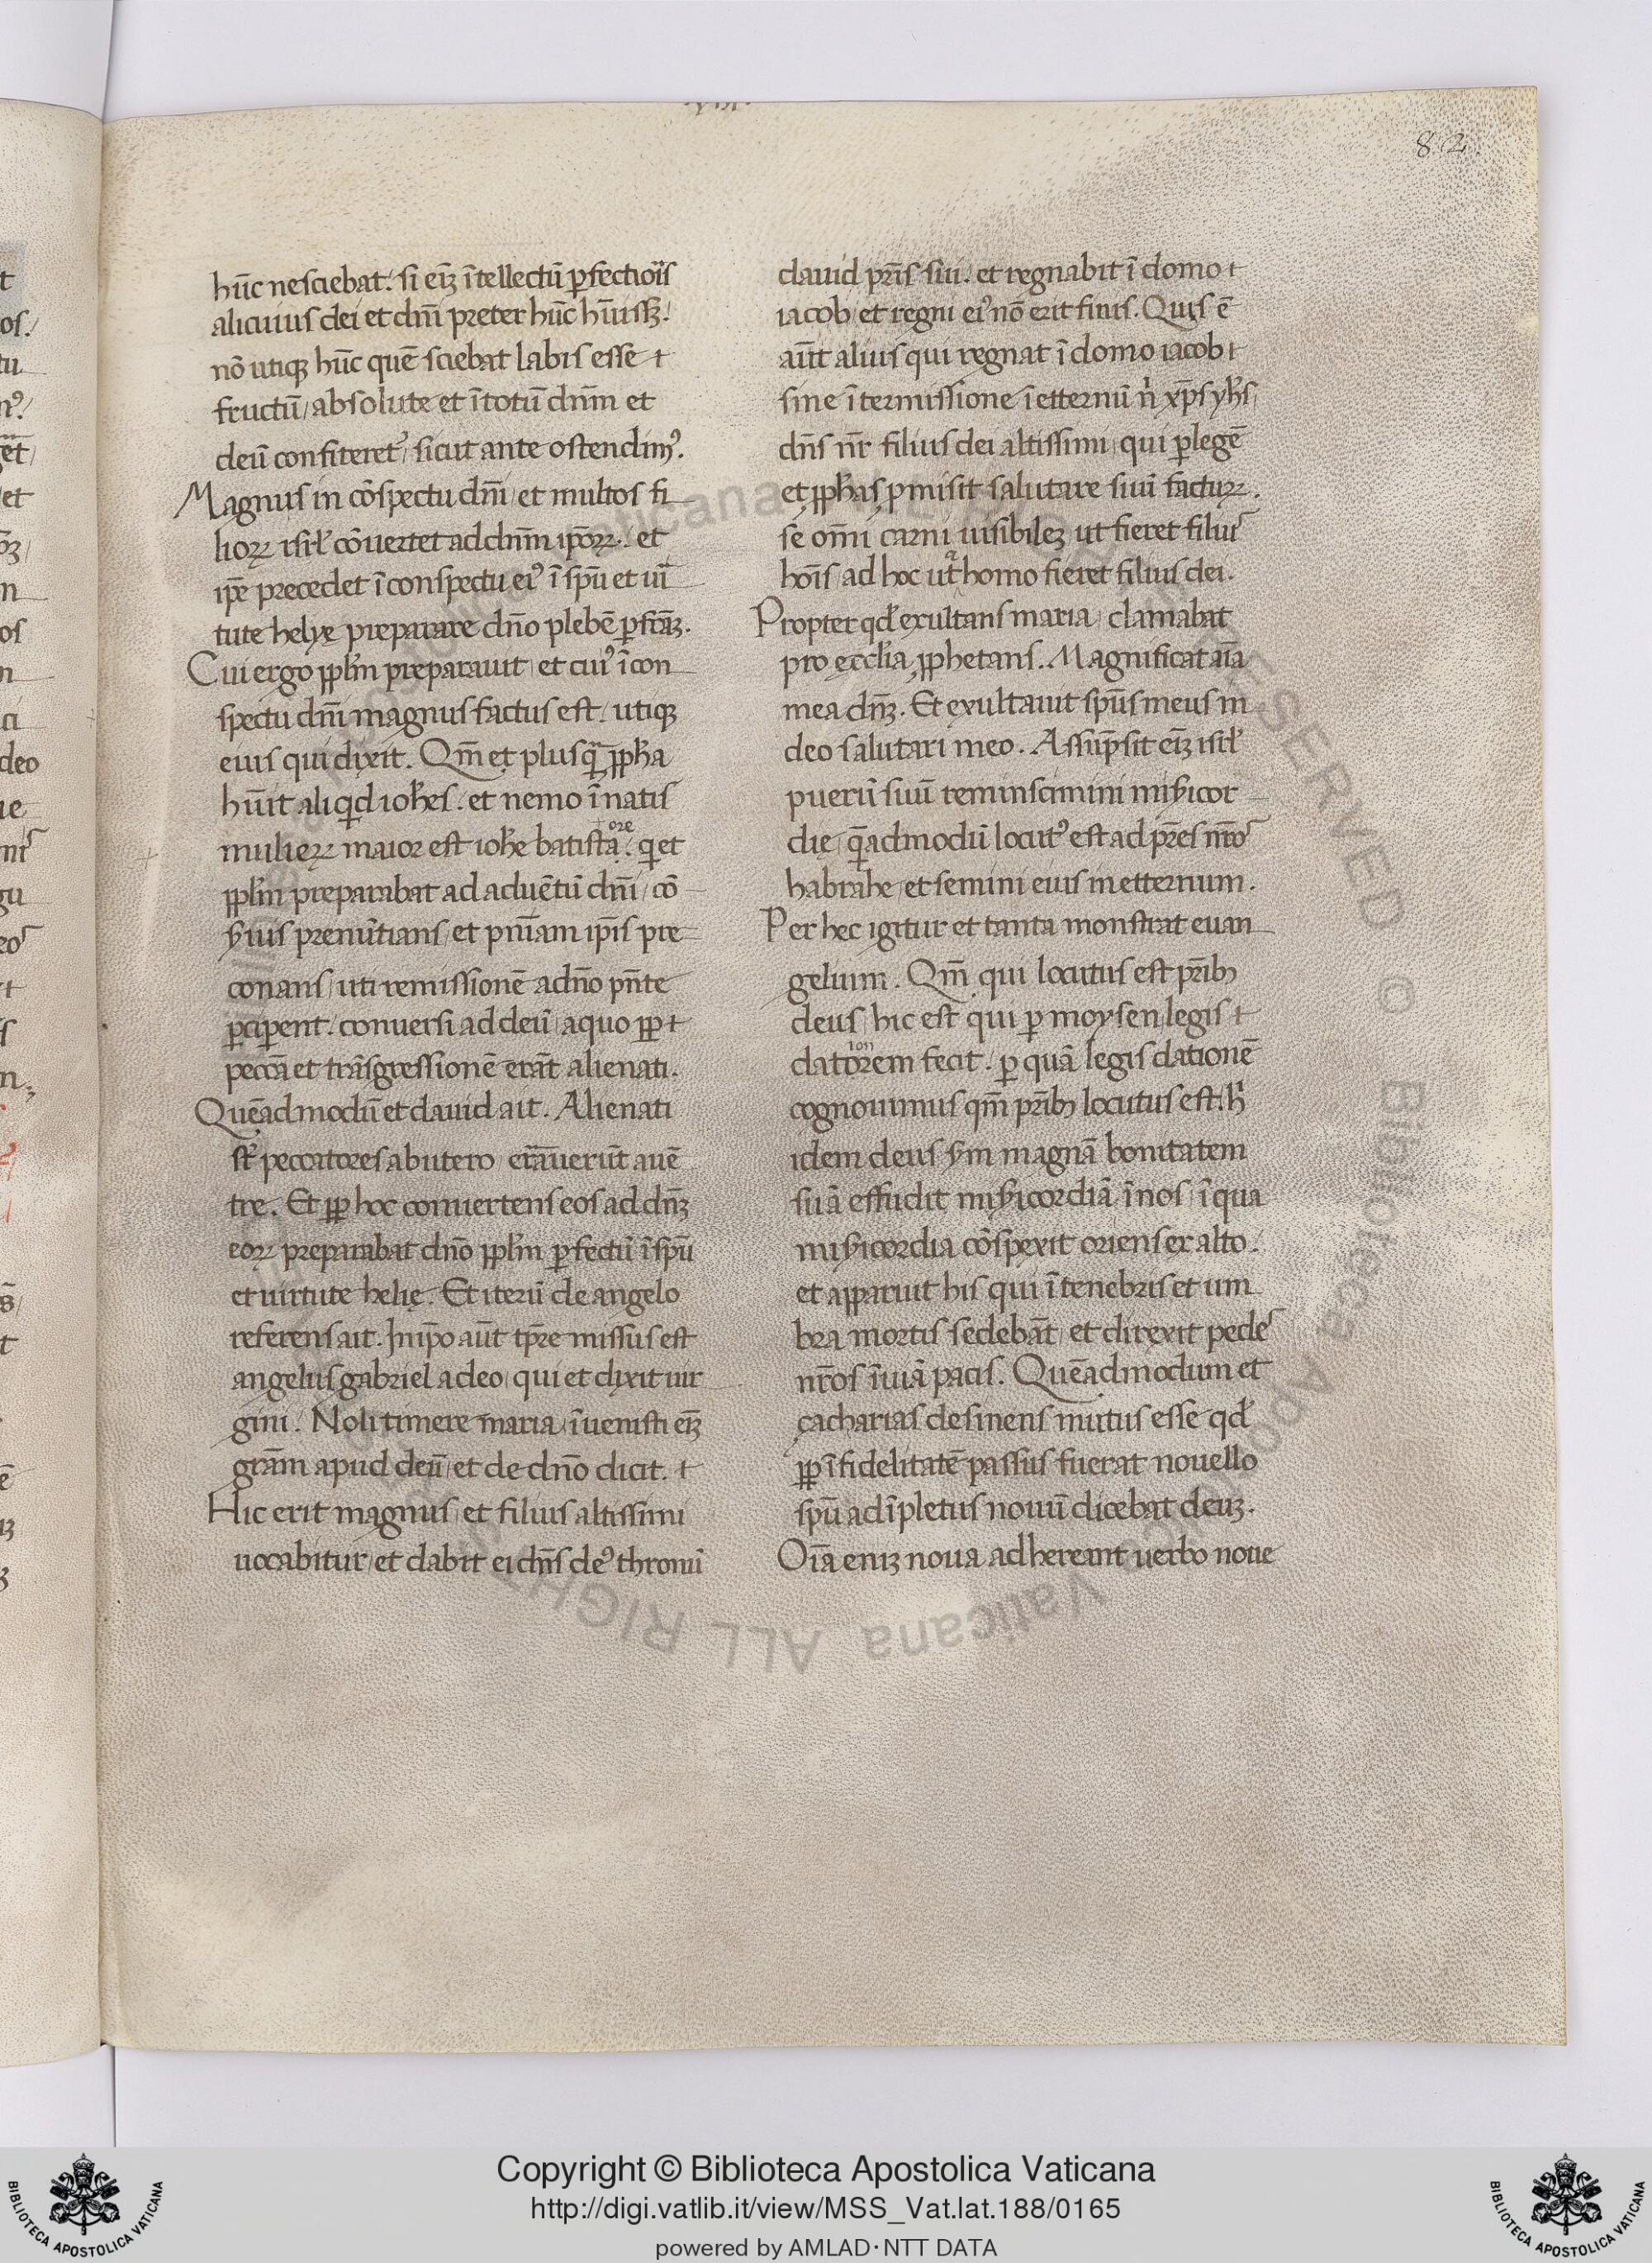 82.
hūc nesciebat. si eīz ītellectū ꝑfectiōis
alicuius dei et dn̄i preter hūc hūissꝫ.
nō utiqꝫ hūc quē sciebat labis esse ɫ
fructū/absolute et ī totū dn̄m et
deū confiteretˀ/sicut ante ostendimˀ.
Magnus in cōspectu dn̄i/et multos fi
lioꝝ isrł cōuertet ad dn̄m ip̄oꝝ. et
ip̄e precedet ī conspectu eiˀ ī sp̄u et uī
tute helye preparare dn̄o plebē ꝑfcāꝫ.
Cui ergo ꝓpłm preparauit/et cuiˀ ī con
spectu dn̄i magnus factus est/utiqꝫ
eius qui dixit. Qm̄ et plusqͣ ꝓpha
hūit aliqͥd ioħes. et nemo ī natis
mulieꝝ maior est ioħe batistaͦʳᵉ. qͥ et
ꝓpłm preparabat ad aduētū dn̄i/cō
ẜuis prenūtians/et pn̄iam ip̄is pre
conans/uti remissionē adn̄o pn̄te
ꝑciꝑent. conuersi ad deū/aquo ꝓp ɫ
peccā et trāsgressionē erāt alienati.
Quēadmodū et dauid ait. Alienati
st̄ peccatores abutero/erͣuerūt auē
tre. Et ꝓp hoc conuertens eos ad dn̄ꝫ
eoꝝ preparabat dn̄o ꝓpłm ꝑfectū ī sp̄u
et uirtute helię. Et iterū de angelo
referens ait. In ip̄o aūt tp̄re missus est
angelus gabriel adeo/qui et dixit uir
gini. Noli timere maria/īuenisti eīꝫ
grām apud deū/et de dn̄o dicit. ɫ
Hic erit magnus/et filius altissimi
uocabitur/et dabit ei dn̄s deˀ thronū
dauid pr̄is sui. et regnabit ī domo ɫ
iacob/et regni eiˀ nō erit finis. Quis ē
aūt alius qui regnat ī domo iacob ɫ
sine ī termissione ī etternū nͥ xp̄s yħs/
dn̄s nr̄ filius dei altissimi/qui ꝑ legē
et ꝓphas ꝓmisit salutare suū facturꝫ.
se om̄i carni uisibileꝫ ut fieret filius
hoīs/ad hoc ut homo fieret filius dei.
Propter qđ exultans maria/clamabat
pro eccłia ꝓphetans. Magnificat aīa
mea dn̄ꝫ. Et exultauit sp̄us meus in
deo salutari meo. Assūpsit eīꝫ isrł
puerū suū reminscimini miẜicor
die/qͣadmodū locutˀ est ad pr̄es nr̄os
habrahe/et semini eius in etternum.
Per hec igitur et tanta monstrat euan
gelium. Qm̄ qui locutus est pr̄ibꝫ
deus/hic est qui ꝑ moysen legis ɫ
datiͦⁿorem fecit. ꝑ quā legis dationē
cognouimus qm̄ pr̄ibꝫ locutus est. hͥ
idem deus ẜm magnā bonitatem
suā effudit miẜicordiā ī nos/ī qua
miẜicordia cōspexit oriens ex alto.
et apparuit his qui ī tenebris et um
bra mortis sedebāt/et direxit pedes
nr̄os ī uiā pacis. Quēadmodum et
çacharias desinens mutus esse qđ
ꝓp īfidelitatē passus fuerat nouello
sp̄u adīpletus nouū dicebat deuꝫ.
Oīa eniꝫ noua adhereant uerbo noue
Copyright © Biblioteca Apostolica Vaticana
http://digi.vatlib.it/view/MSS_Vat.lat.188/0165
powered by AMLAD·NTT DATA